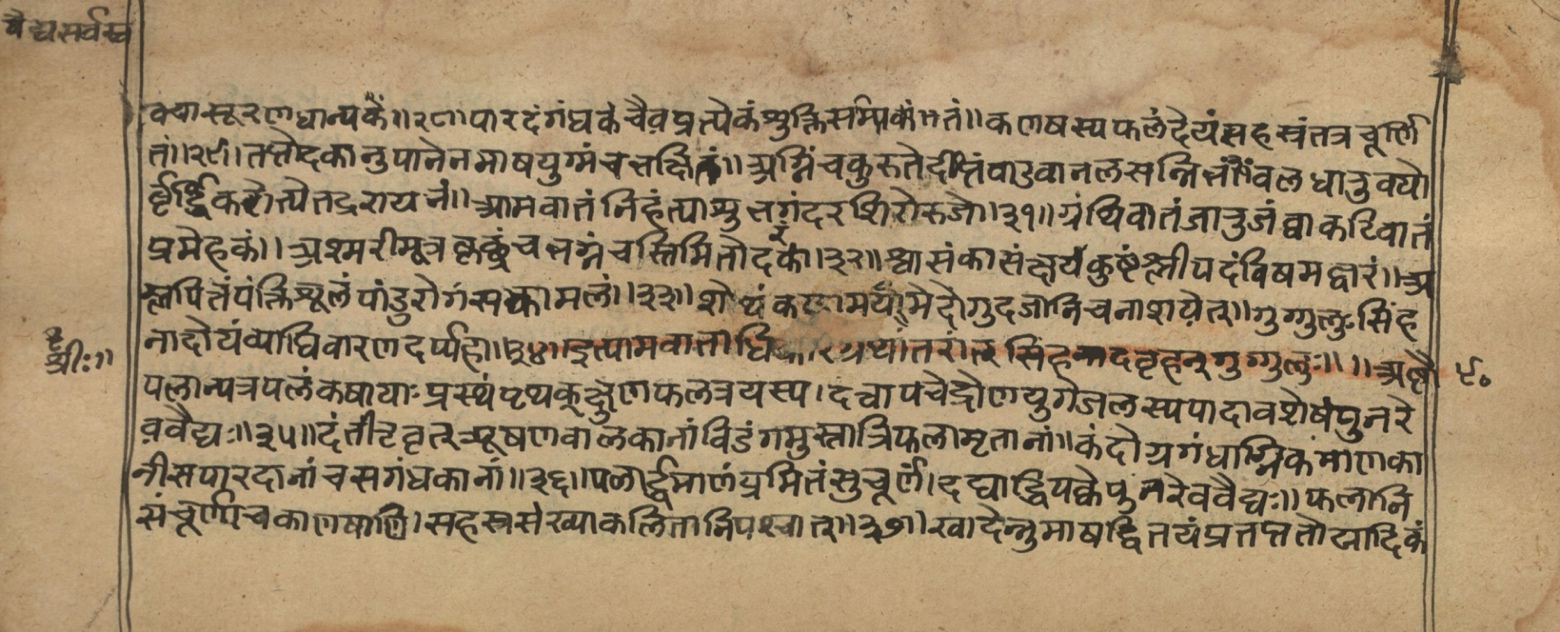 वैद्यसर्वस्व
क्वासूरणधान्यकैं॥२८॥पारदंगंधकंचैवप्रत्येकंशुक्तिसंम्मकं॥तं॥कणषस्यफलंदेयंसहस्त्रंतत्रचूर्णि
तं॥२९॥तप्तोदकानुपानेनमाषयुग्मंचभक्षितं॥अग्निंचकुरुतेदीप्तंवाडवानलसन्निभं॥बलधातुवयो
वृद्धिंकरोत्येतद्रसायनं॥आमवातंनिहंत्याशुभगंदरशिरोरुजो॥३१॥ग्रंथिवातंजानुजंघाकटिवातं
प्रमेहकं॥अश्मरीमूत्रकृछ्रंचभग्नंचस्तिमितोदरकं॥३२॥श्वासंकासंक्षयंकुष्टंश्लीपदंविषमद्वारं॥अ
म्लपितंपंक्तिशूलंपांडुरोगंसकामलं॥३३॥शोथं मेदोगुदजानिचनाशयेत्॥गुग्गुलुःसिंह
श्रीः॥
नादोयंव्याधिवारणदर्प्पहा॥३४॥इत्यामवाताधिकार ग्रंथांतरात्सिंहनादबृहन्गुग्गुलुः॥॥अष्टौ
४०
पलान्पत्रपलंकषायाःप्रस्थंपृथक्क्षुणफलत्रयस्य।दत्वापचेद्द्रोणयुगेजलस्यपादावशेषेपुनरे
ववैद्यः॥३५॥दंतीत्रवृतत्र्यूषणवालकानांविडंगमुस्तात्रिफलामृतानां॥कंदोग्रगंधाग्निकमाणका
नीसपारदानांचसगंधकानां॥३६॥पलार्द्धमाणंप्रमितंसुचूर्णं।दद्याद्विपक्केपुनरेववैद्यः॥फलानि
संचूर्ण्यचकाणषाणि।सहस्त्रसंख्याकलितानिपश्चात्॥३७॥खादेन्तुमाषद्वितयंप्रतप्ततोयादिकं